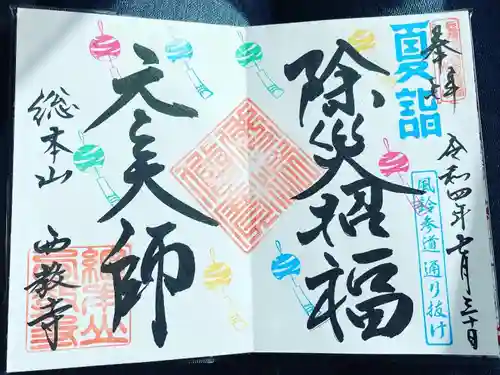 夏詣
奉拝
令和四年七月三十日
風鈴参道 通り抜け
除災招福
元三大師
総本山
西教寺